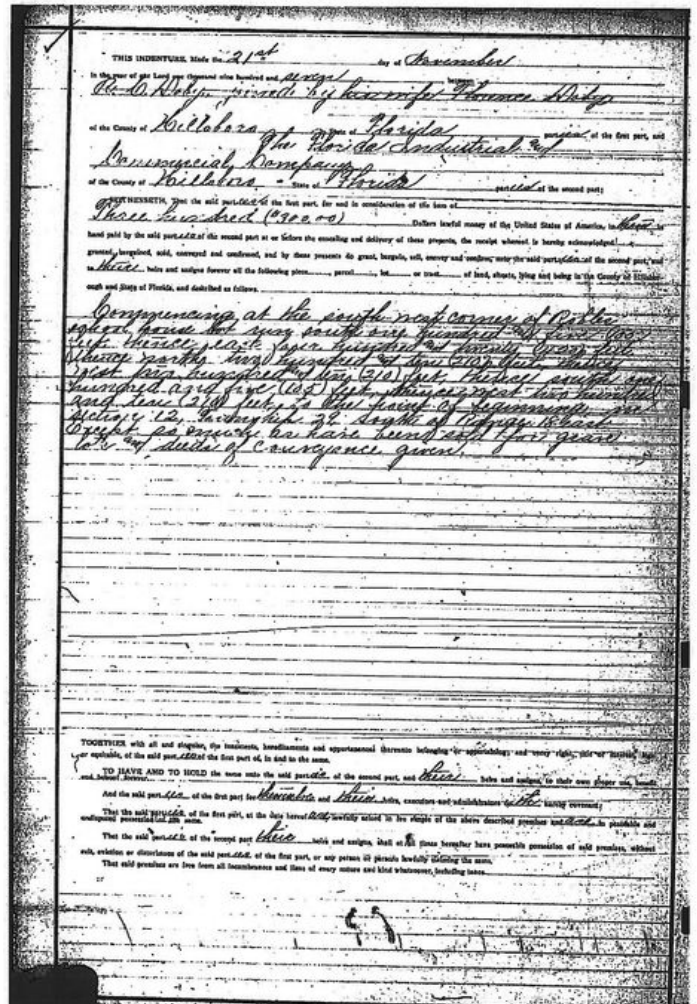 THIS INDENTURE, Made the 21st day of November
in the year of our Lord one thousand nine hundred and seven between
Doby, joined by his wife Florence Doby
of the County of Hillsboro State of Florida parties of the first part, and
The Florida Industrial and
Commercial Company
of the County of Hillsboro State of Florida parties of the second part;
WITNESSETH, That the said parties of the first part, for and in consideration of the sum of
Three hundred ($300.00) Dollars lawful money of the United States of America, to them in
hand paid by the said parties of the second part at or before the ensealing and delivery of these presents, the receipt whereof is hereby acknowledged
granted, bargained, sold, conveyed and confirmed, and by these presents do grant, bargain, sell, convey and confirm, unto the said parties of the second part, and
to their heirs and assigns forever all the following piece, parcel, lot or tract of land, situate, lying and being in the County of Hillsbor-
ough and State of Florida, and described as follows
Commencing at the south west corner of
school house lot run south one hundred and five (105)
feet thence east four hundred and twenty feet
thence north two hundred and ten (210) feet, thence
west two hundred and ten (210) feet, thence south one
hundred and five (105) feet, thence west two hundred
and ten (210) feet to the point of beginning, in
section 12 Township 29 South of Range 18 East
Except so much as have been sold for grave
lots and deeds of conveyance given.
TOGETHER with all and singular, the tenements, hereditaments and appurtenances thereunto belonging or appertaining, and every right, title or interest, legal
or equitable, of the said parties of the first part of, in and to the same.
TO HAVE AND TO HOLD the same unto the said parties of the second part, and their heirs and assigns, to their own proper use, benefit
and behoof forever.
And the said parties of the first part for themselves and their heirs, executors and administrators do hereby covenant;
That the said parties of the first part, at the date hereof are lawfully seized in fee simple of the above described premises and are in peaceable and
undisputed possession of the same.
That the said parties of the second part their heirs and assigns, shall at all times hereafter have peaceable possession of said premises, without
suit, eviction or disturbance of the said parties of the first part, or any person or persons lawfully claiming the same.
That said premises are free from all incumbrances and liens of every nature and kind whatsoever, including taxes